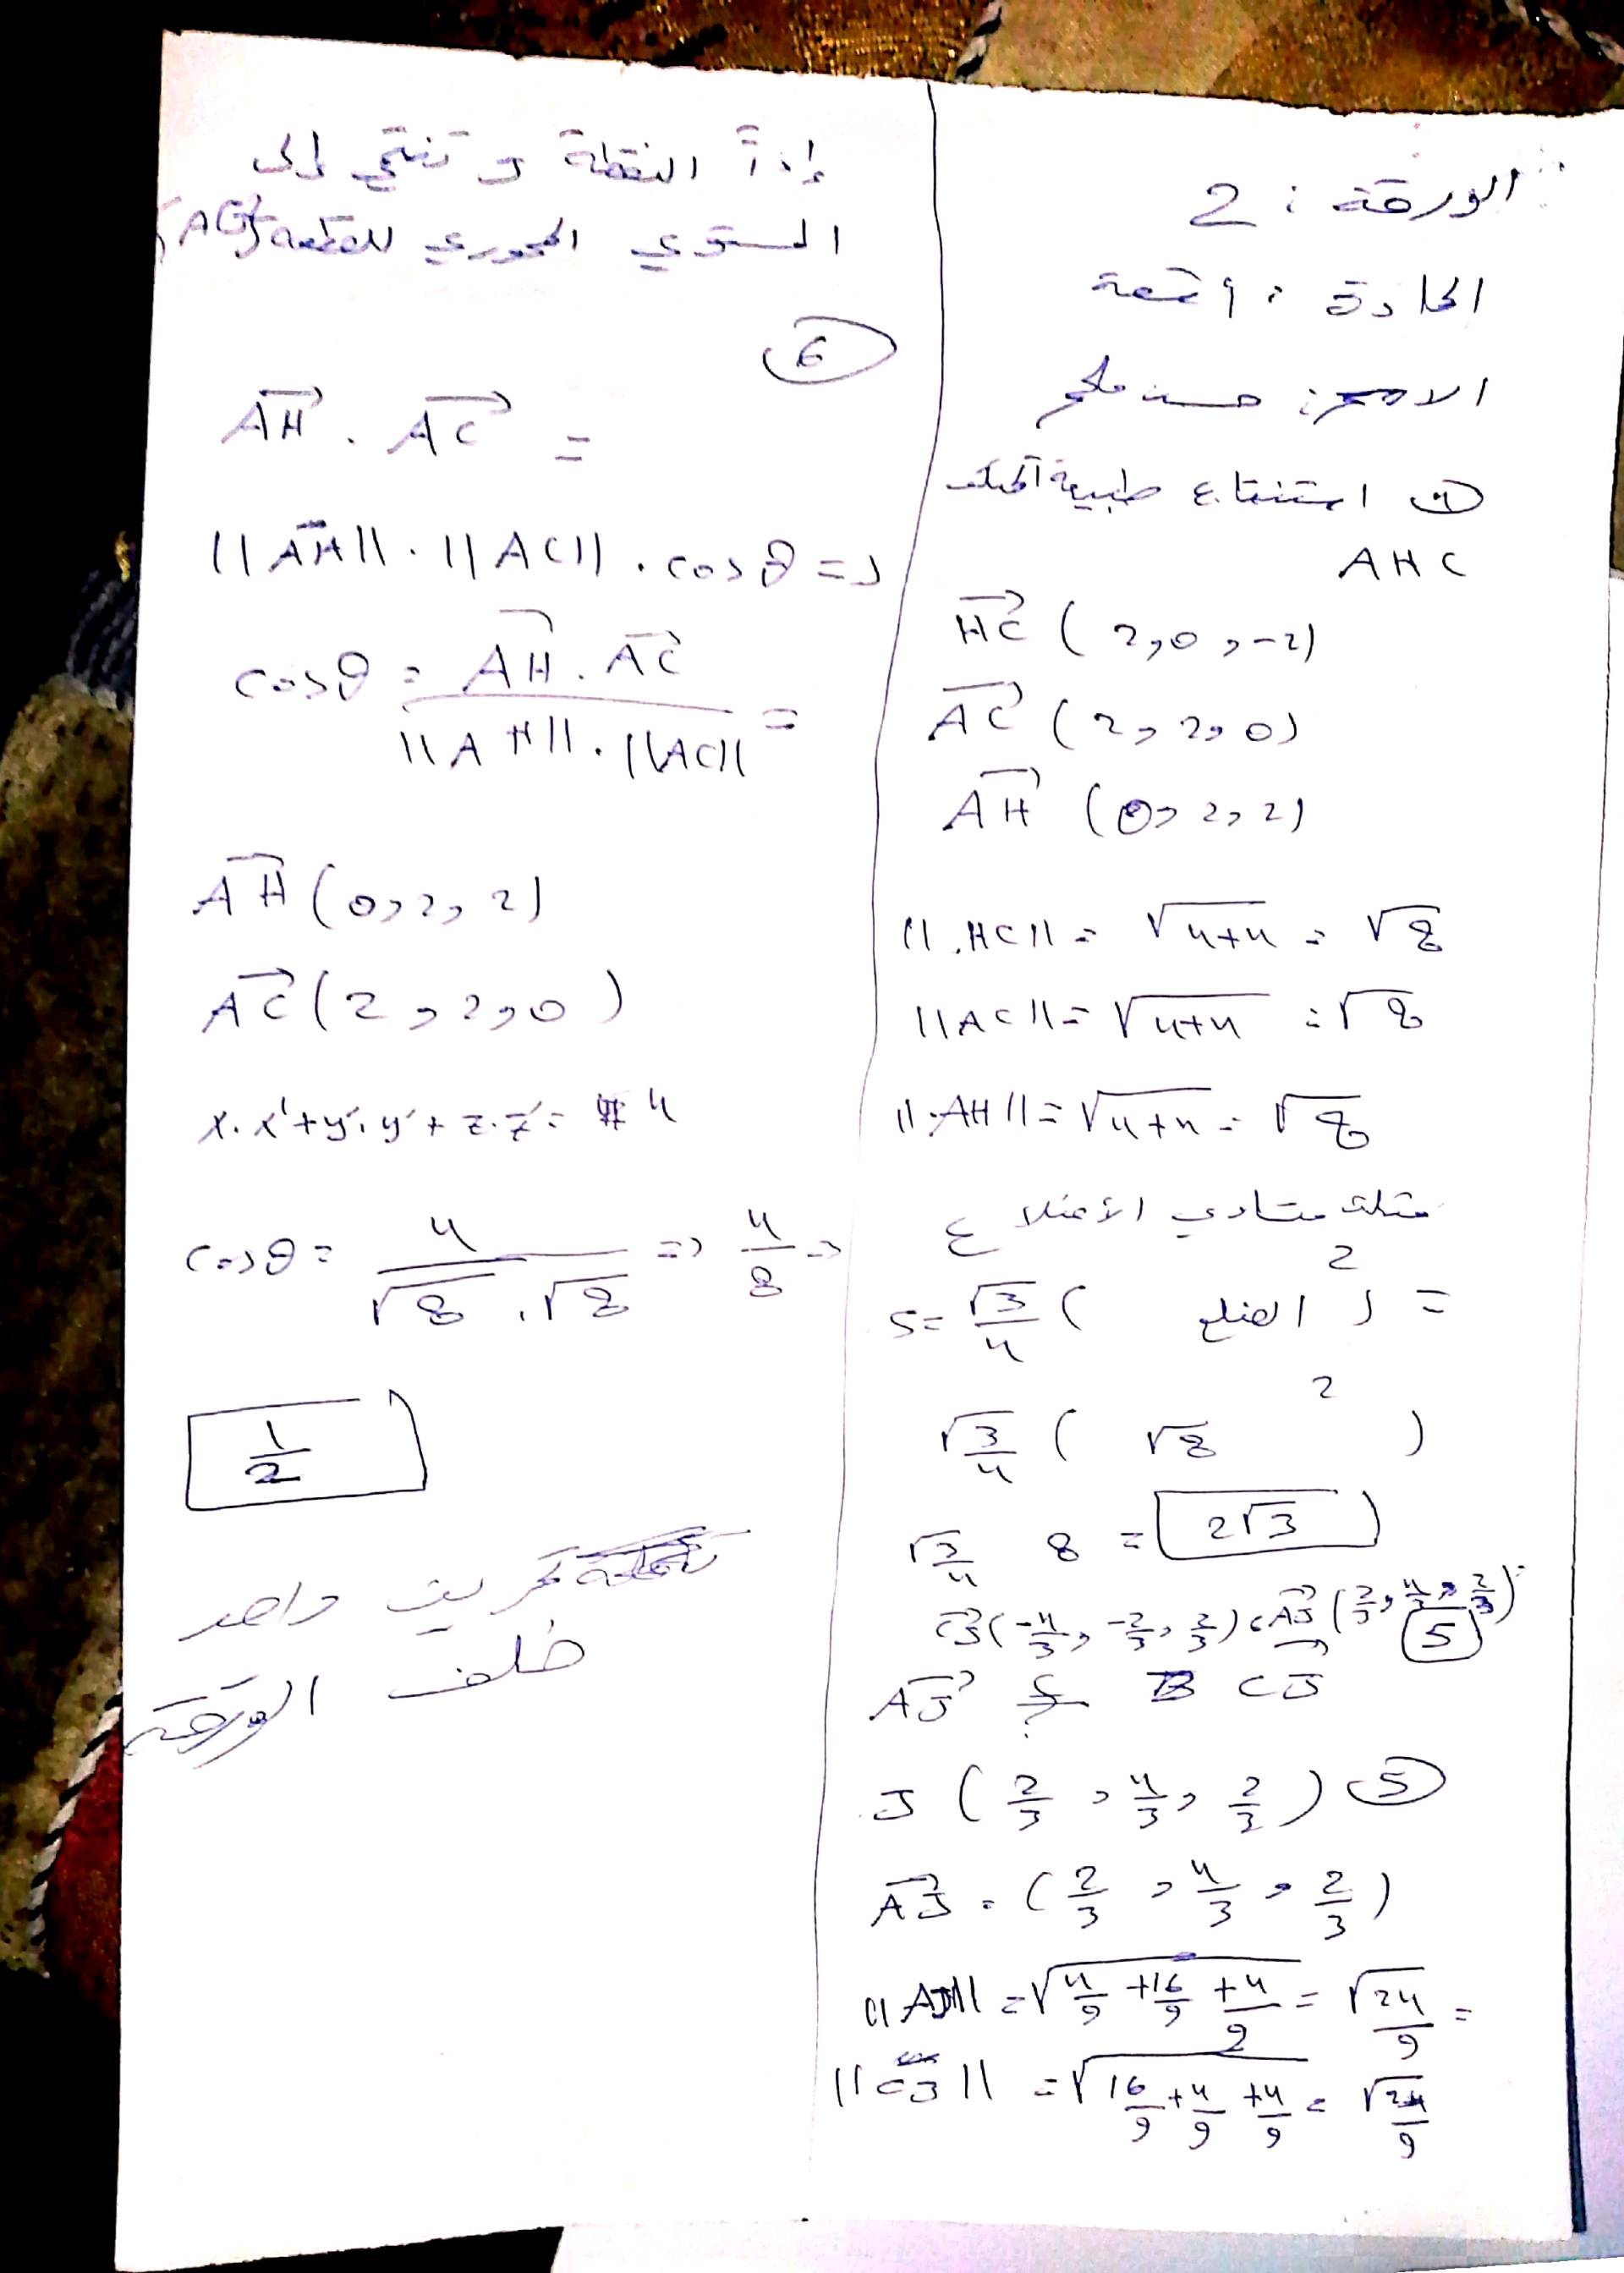 الورقة : 2
المادة :
الاسم : حسن ملحم
① استنتاج طبيعة المثلث
AHC
HC (2,0,-2)
AC (2,2,0)
AH (0,2,2)
||HC|| = √4+4 = √8
||AC|| = √4+4 = √8
||AH|| = √4+4 = √8
مثلث متساوي الأضلاع
S = √3/4 (الضلع)² =
√3/4 (√8)²
√3/4 8 = 2√3
CJ (-4/3, -2/3, 2/3) , AJ (2/3, 4/3, 2/3)
5
AJ ؟ CJ
J (2/3, 4/3, 2/3) ⑤
AJ = (2/3, 4/3, 2/3)
||AJ|| = √4/9 + 16/9 + 4/9 = √24/9 =
||CJ|| = √16/9 + 4/9 + 4/9 = √24/9
إذاً النقطة J تنتمي إلى
المستوي المحوري للقطعة [AC]
⑥
AH . AC =
||AH|| . ||AC|| . cos θ =>
cos θ = AH . AC / ||AH|| . ||AC|| =
AH (0,2,2)
AC (2,2,0)
x.x' + y.y' + z.z' = 4
cos θ = 4 / √8 . √8 => 4/8 =>
1/2
تمرين واحد
خلف الورقة